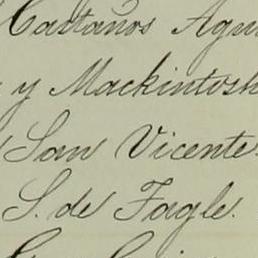 Castaños Agui
y Mackintosh
San Vicente.
S. de Tagle.